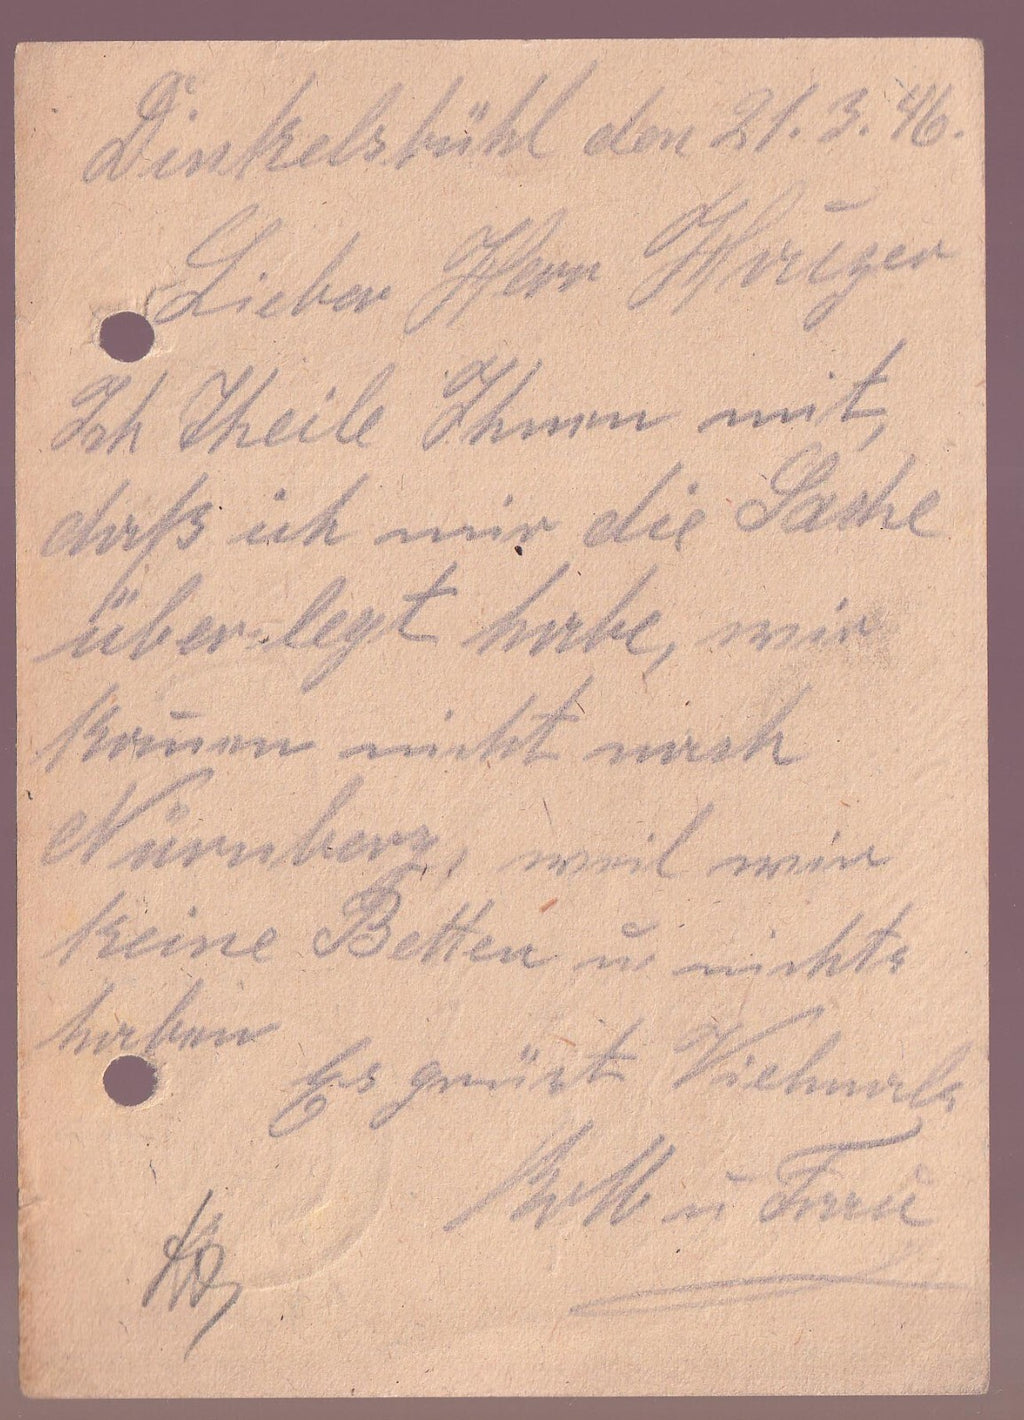 Dinkelsbühl den 21. 3. 46.
Lieber Herr Krüger
Ich Theile Ihnen mit,
daß ich mir die Sache
über-legt habe, wir
kom̅en nicht nach
Nürnberg, weil wir
keine Betten u nichts
haben
Es grüst Vielmals
u Frau